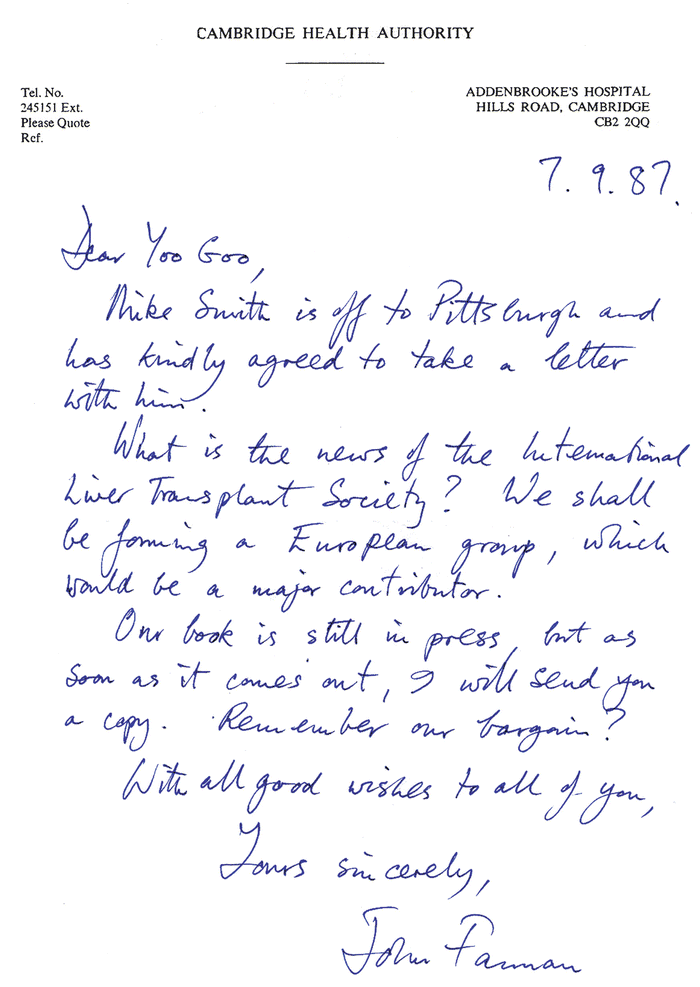 CAMBRIDGE HEALTH AUTHORITY
Tel. No.
245151 Ext.
Please Quote
Ref.
ADDENBROOKE'S HOSPITAL
HILLS ROAD, CAMBRIDGE
CB2 2QQ
7. 9. 87.
Dear Yoo Goo,
Mike Smith is off to Pittsburgh and
has kindly agreed to take a letter
with him.
What is the news of the International
Liver Transplant Society? We shall
be forming a European group, which
would be a major contributor.
Our book is still in press, but as
soon as it comes out, I will send you
a copy. Remember our bargain?
With all good wishes to all of you,
Yours sincerely,
John Farman